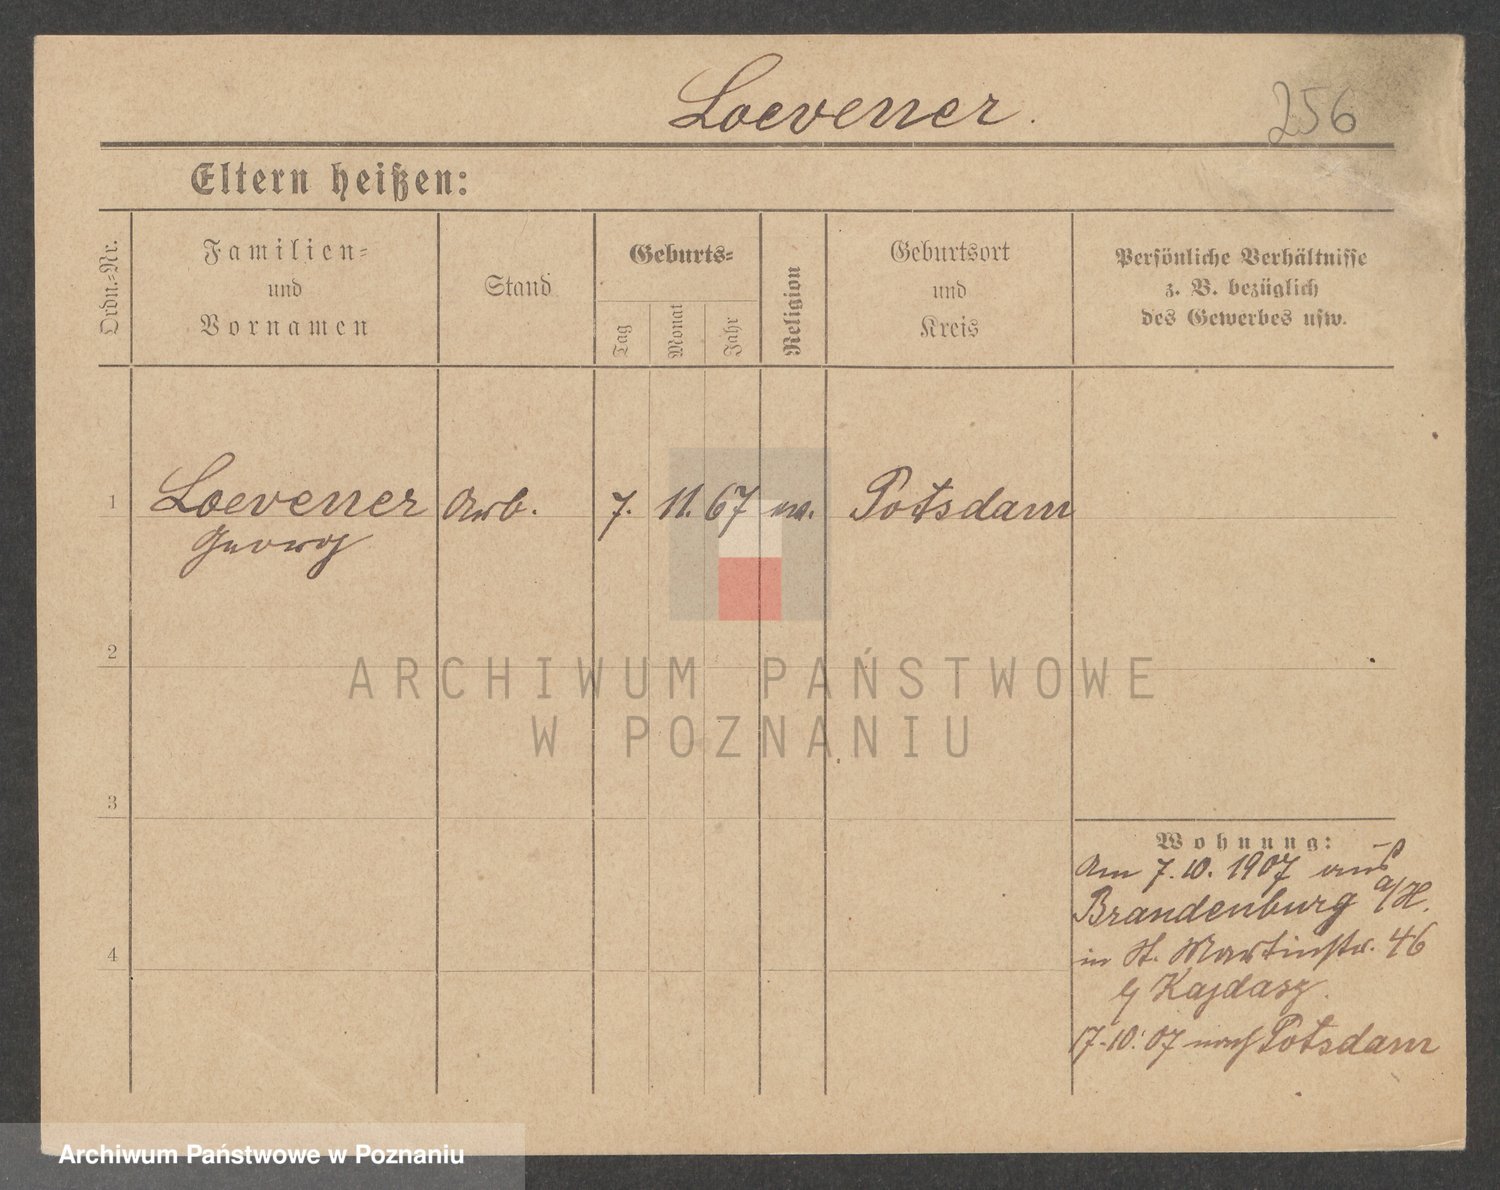 Loevener.
256
Eltern heißen:
Ordn.-Nr.
Familien-
und
Vornamen
Stand
Geburts-
Tag
Monat
Jahr
Religion
Geburtsort
und
Kreis
Persönliche Verhältnisse
z. B. bezüglich
des Gewerbes usw.
1 Loevener Arb. 7. 11. 67 ev. Potsdam
Georg
2
ARCHIWUM PAŃSTWOWE
W POZNANIU
3
Wohnung:
Am 7.10.1907 aus
Brandenburg a/H.
4
in St. Martinstr. 46
b/ Kajdasz.
17.10.07 nach Potsdam
Archiwum Państwowe w Poznaniu